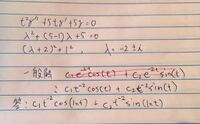 t²y'' + 5ty' + 5y = 0
λ² + (5-1)λ + 5 = 0
(λ+2)² + 1² λ = -2 ± i
一般解 c₁e⁻²ᵗcos(t) + c₂e⁻²ᵗsin(t)
: c₁t⁻²cos(t) + c₂t⁻²sin(t)
答: c₁t⁻²cos(lnt) + c₂t⁻²sin(lnt)